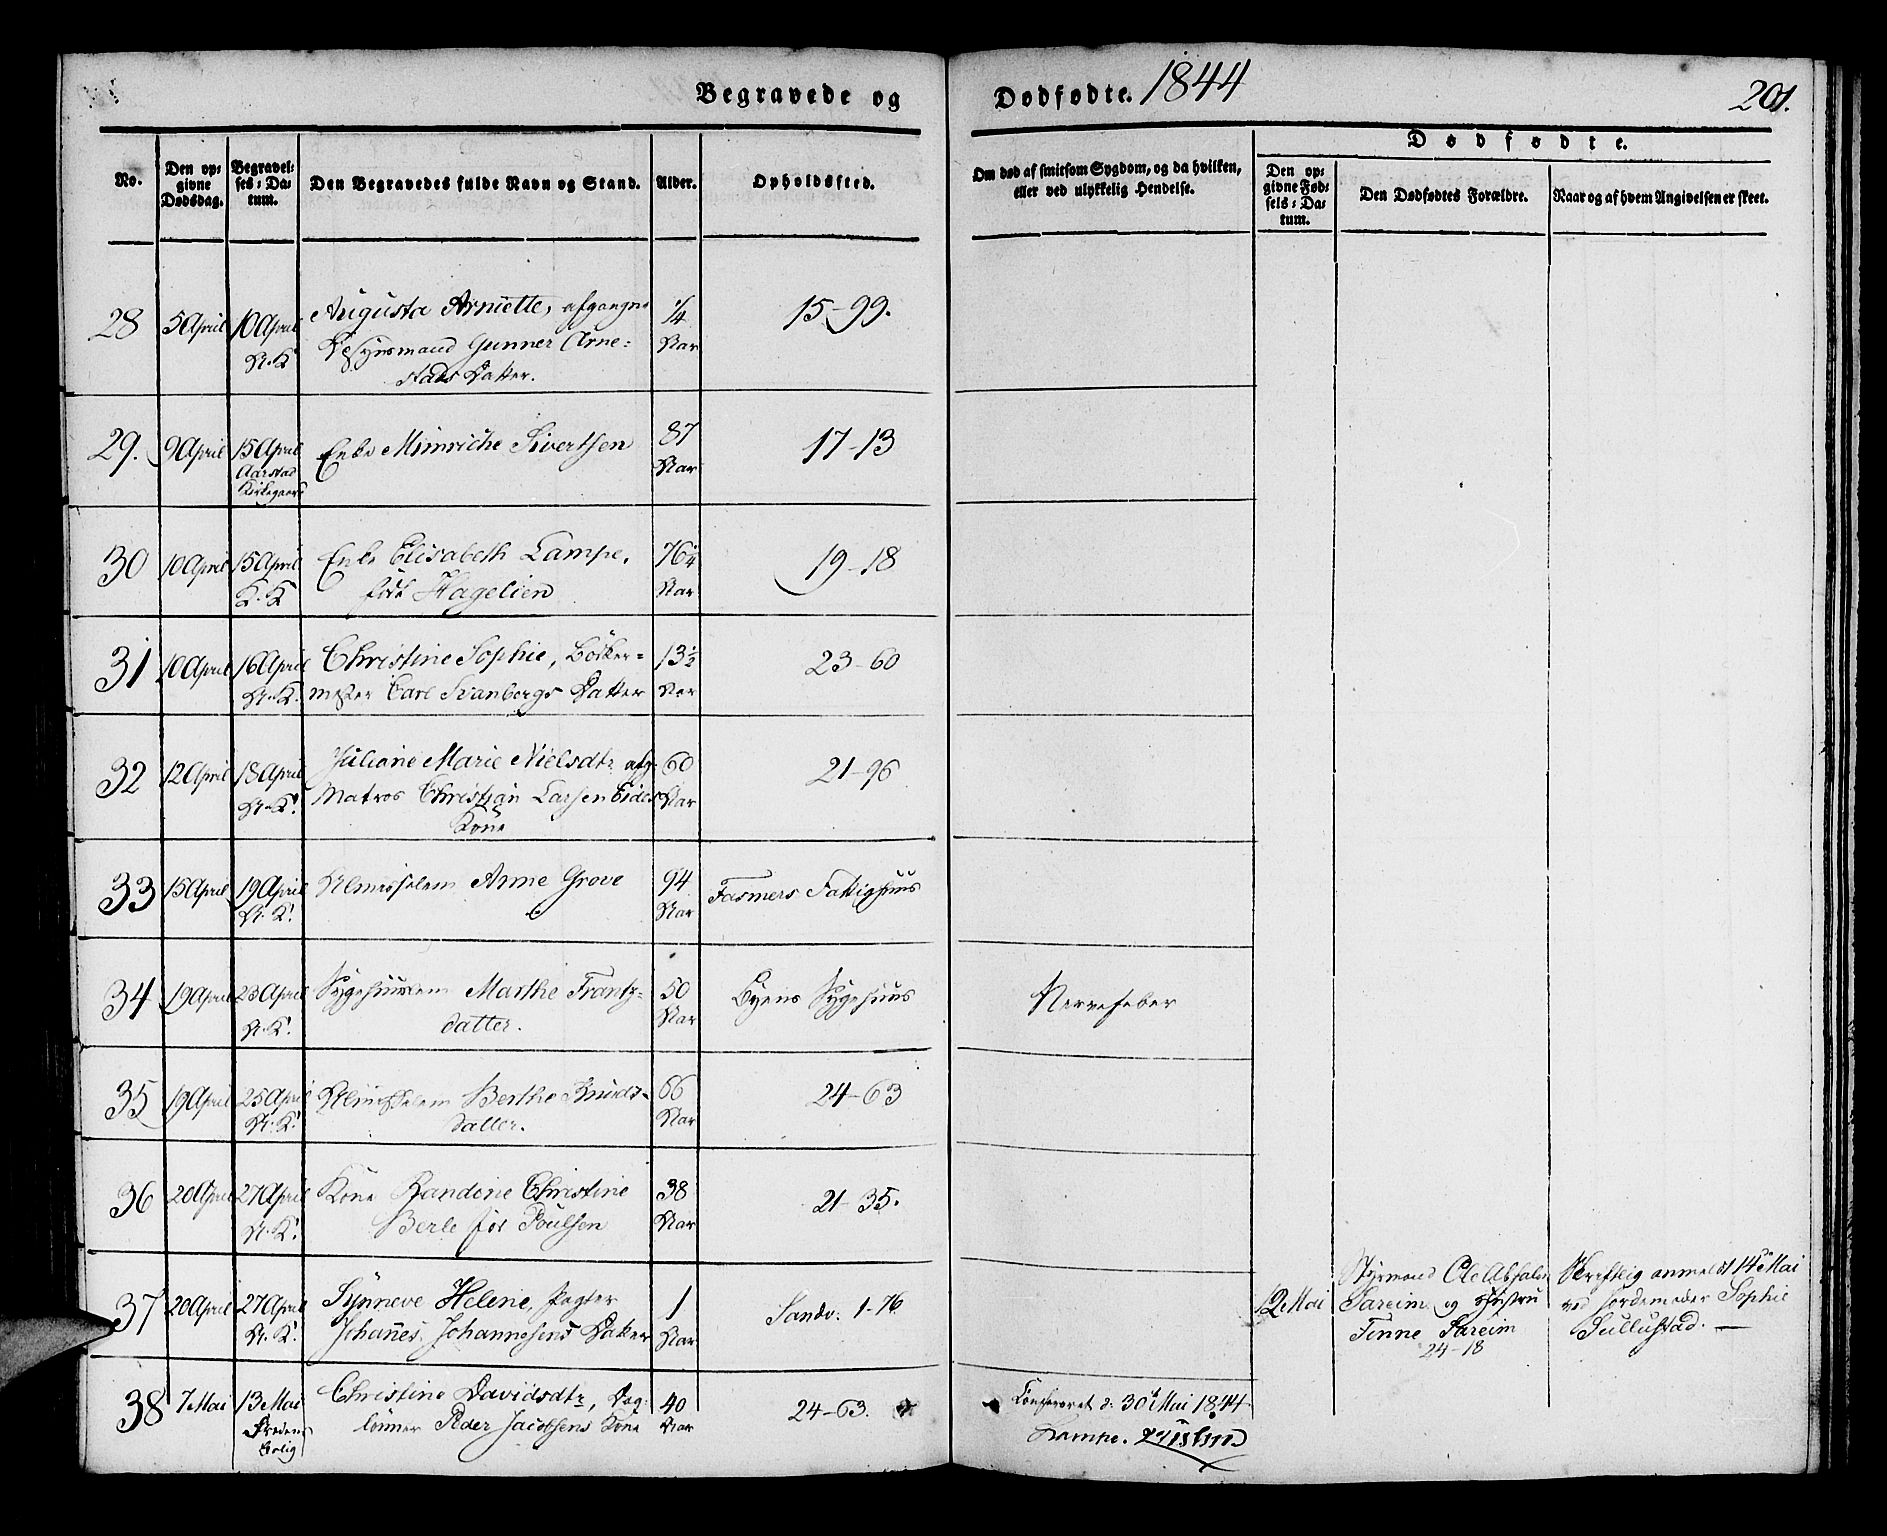 Begravede og Dødfødte. 1844
201.
No.
Den op-
givne
Dødsdag.
Begravel-
ses-Da-
tum.
Den Begravedes fulde Navn og Stand.
Alder.
Opholdssted.
Om død af smitsom Sygdom, og da hvilken,
eller ved ulykkelig Hendelse.
Dødfødte.
Den op-
givne Fød-
sels-Da-
tum.
Den Dødfødtes Forældre.
Naar og af hvem Angivelsen er skeet.
28 5 April 10 April Augusta Arnette, afgangne 1/4 15-99.
K. K. Gunner Arne= Aar
stads Datter.
29. 9 April 15 April Enke Minriche Sivertsen 87 17-13
Aarstad Aar
Kirkegaard
30 10 April 15 April Enke Elisabeth Lampe, 76 1/4 19-18
K. K. født Hagelien Aar
31 10 April 16 April Christine Sophie, Bødker= 13 1/2 23-60
N. K. mester Carl Svanbergs Datter Aar
32 12 April 18 April Juliane Marie Nielsdtr afg. 60 21-96
N. K. Matros Christian Larsen Eides Aar
Kone
33 15 April 19 April Almisselem Anne Grove 94 Fasmers Fattighuus
N. K. Aar
34 19 April 23 April Sygehuuslem Marthe Frantz= 50 Byens Sygehuus Nervefeber
N. K. datter. Aar
35 19 April 25 April Almisselem Berthe Knuds= 66 24-63
N. K. datter. Aar
36 20 April 27 April Kone Randine Christine 38 21-35.
N. K. Berle fød Poulsen Aar
37 20 April 27 April Synneve Helene, Pagter 1 Sandv: 1-76
N. K. Johanes Johannesens Datter Aar
12 Mai Styrmand Ole Absalon
Sareim og Hustru
Finne Sareim
24-18
Skriftlig anmeldt 14de Mai
ved Jordemoder Sophie
Sullustad.
38 7 Mai 13 Mai Christine Davidsdtr, Dag= 40 24-63.
Fredens lønner Peder Jacobsens Kone Aar
Bolig
Confereret d: 30te Mai 1844
Lampe.